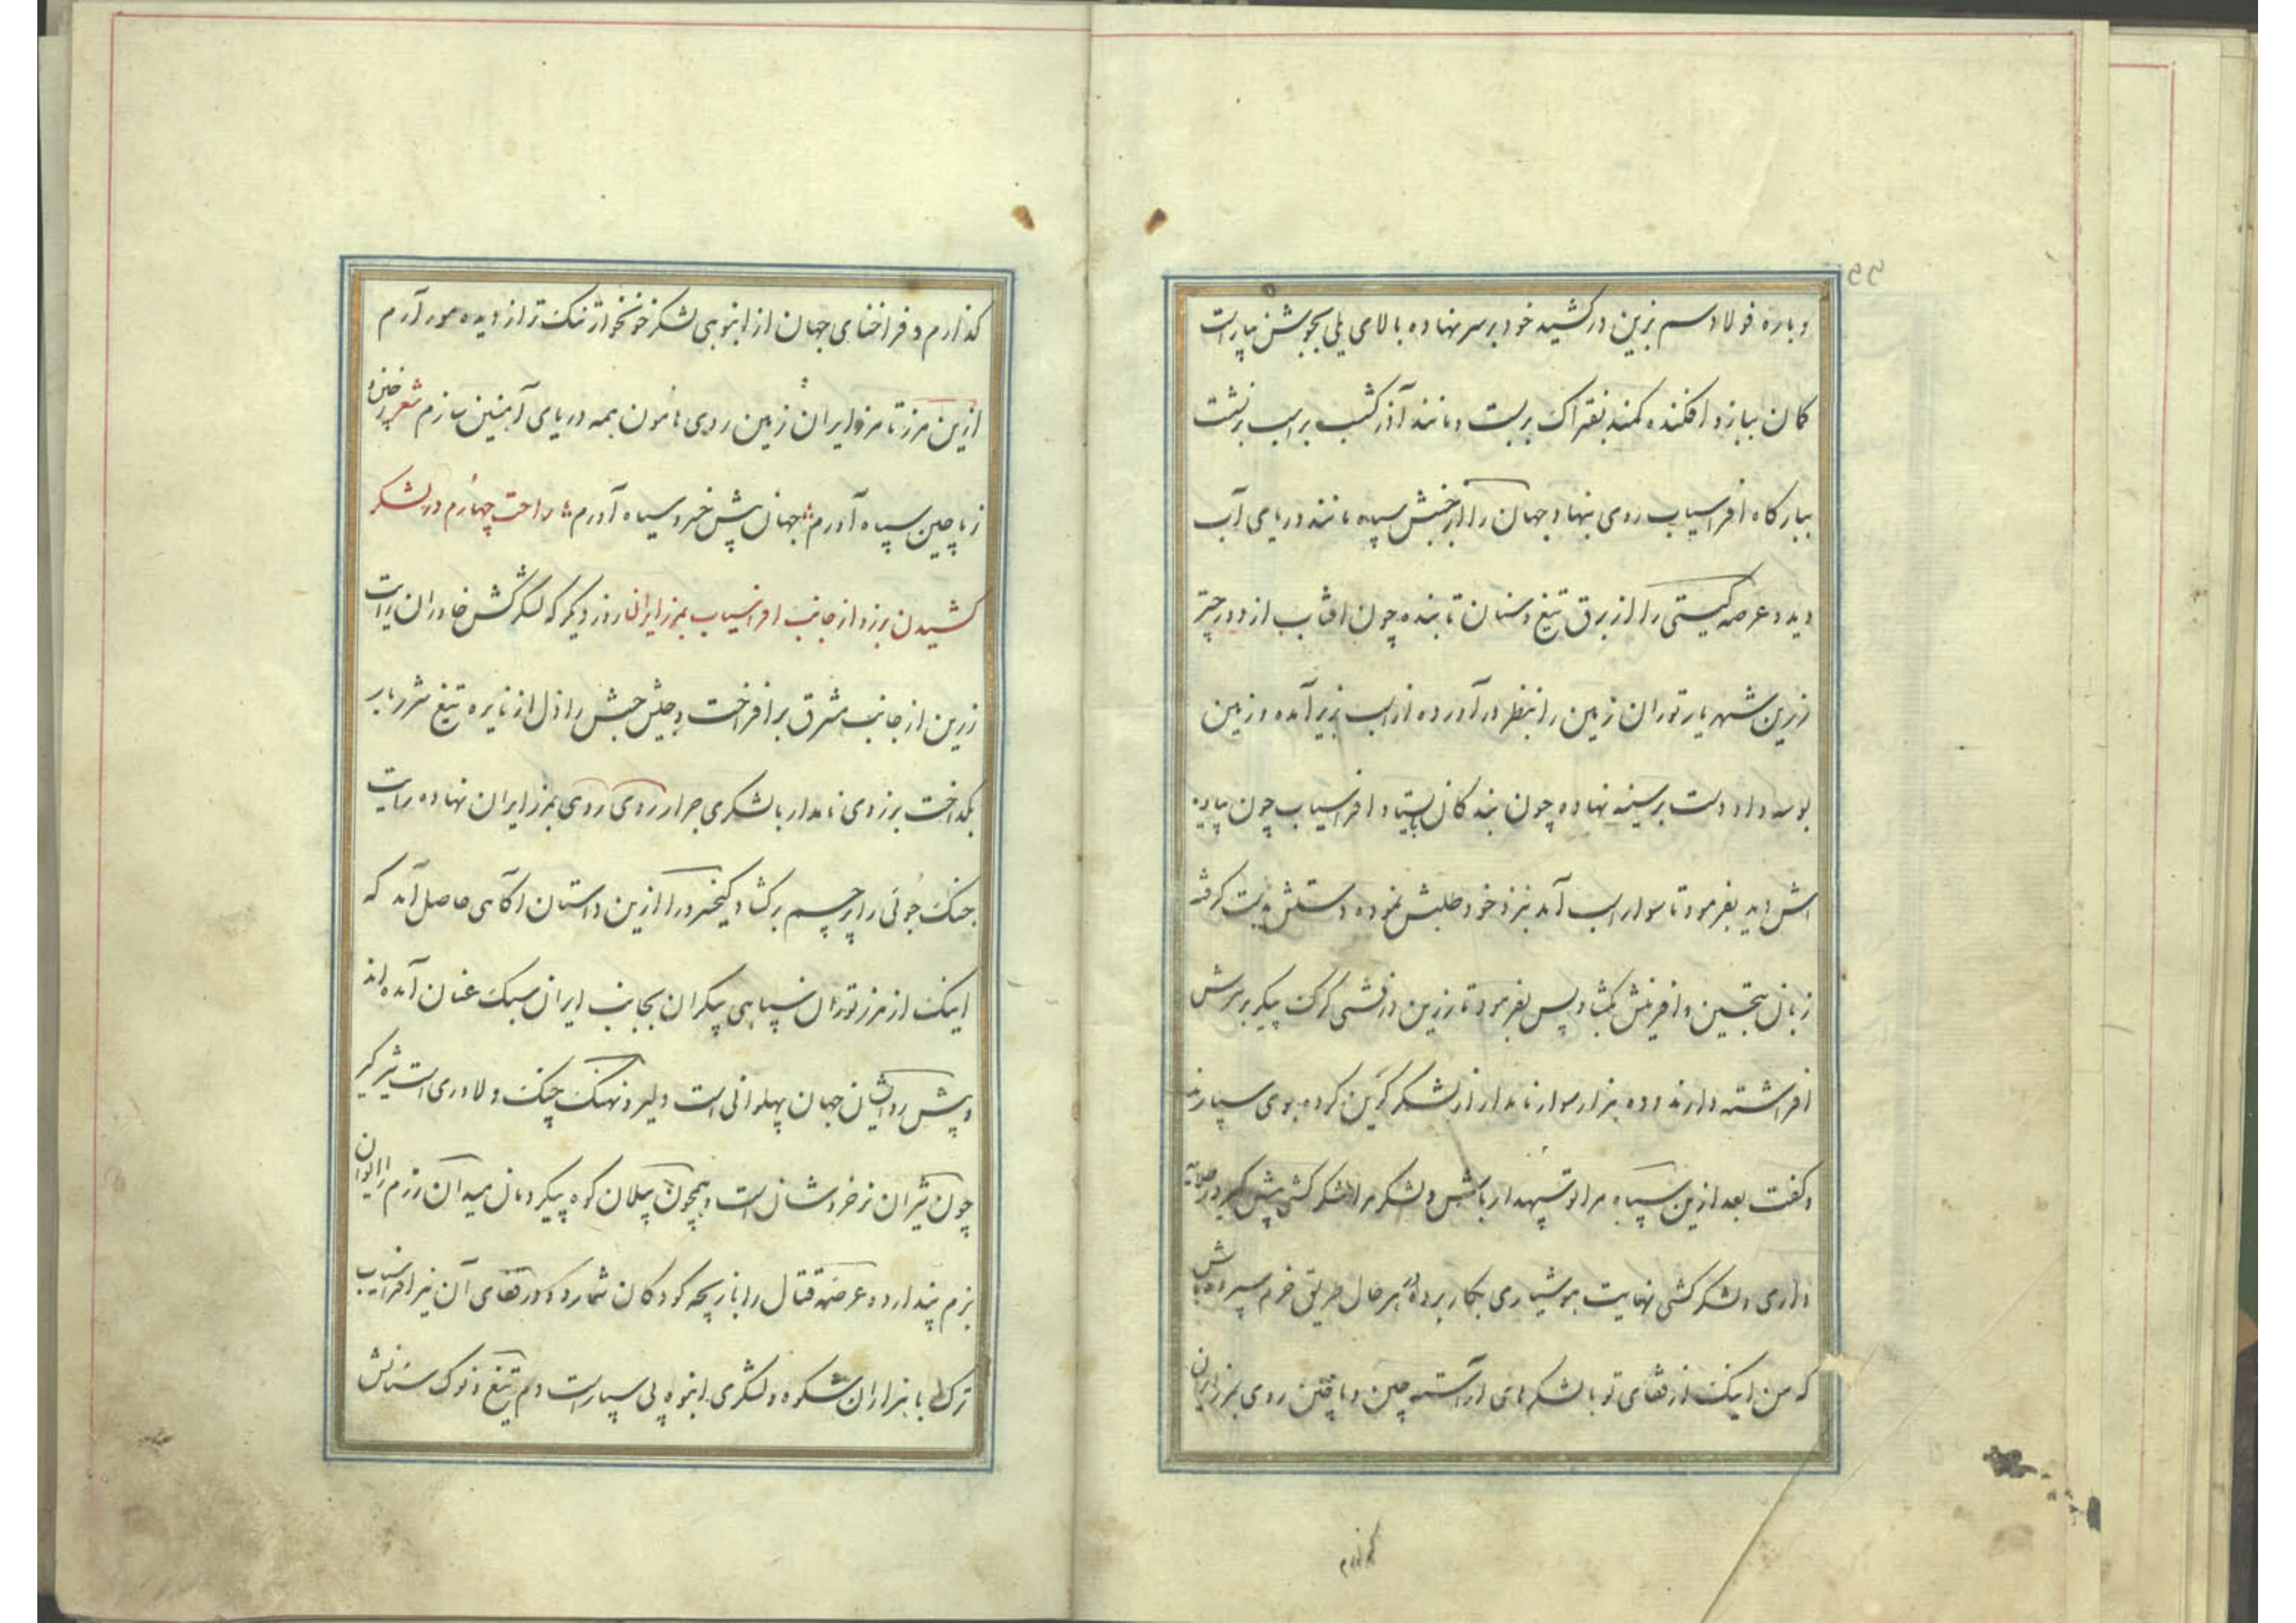 و باره فولاد سم بزین در کشید خود بر سر نهاده بالای یلی بجوشش بیاراست
کمان ببازو افکنده کمند بفتراک بربست و مانند آذرکشسب بر اسب برنشست
ببارکاه افراسیاب روی نهاد جهان را از جنبش سپاه مانند دریای آب
دید و عرصه کیتی را از برق تیغ و سنان تابنده چون افتاب از دور چتر
زرین شهریار توران زمین را بنظر در آورده از اسب بزیر آمده و زمین
بوسه داد و دست بر سینه نهاده چون بندکان بایستاد افراسیاب چون پیاده
اش دید بفرمود تا سوار اسب آمد نزد خود طلبش نموده دستش بدست کرفته
زبان بتحسین و آفرینش کشاد پس بفرمود تا زرین درفشی کرک پیکر بر سرش
افراشته دارند و ده هزار سوار نامدار از لشکر کزین کرده بوی سپارند
و کفت بعد ازین سپاه مرا تو سپهدار باش و لشکر مرا لشکرکشی پیش کیر در
داری و لشکرکشی نهایت هوشیاری بکار برده در هر حال طریق حزم سپرده باش
که من اینک از قفای تو با لشکرهای آراسته چین و ماچین روی بمرز ایران
کذارم
کذارم و فراخنای جهان از انبوهی لشکر خونخوار تنک تر از دیده مور آرم
ازین مرز تا مرز ایران زمین روی هامون همه دریای آهنین سازم شعر ز چین و
ز ماچین سپاه آورم جهان پیش خسرو سیاه آورم ساحت چهارم در لشکر
کشیدن برزو از جانب افراسیاب بمرز ایران روز دیکر که لشکرکش خاوران رایت
زرین از جانب مشرق برافراخت و جیش حبش را دل از نایره تیغ شرربار
بکداخت برزوی نامدار با لشکری جرار روی بمرز ایران نهاده رایت
جنک جوئی را پرچم برکشاد کیخسرو را ازین داستان اکاهی حاصل آمد که
اینک از مرز توران سپاهی بیکران بجانب ایران سبک عنان آمده اند
و پیش رو ایشان جهان پهلوانی است دلیر و نهنک چنک و دلاوری است شیرکیر
چون شیران نر خروشان است و همچون پیلان کوه پیکر دمان میدان رزم را ایوان
بزم پندارد و عرصه قتال را بازیچه کودکان شمارد و در قفای آن نیز افراسیاب
ترک با هزاران شکوه و لشکری انبوه پی سپار است و دم تیغ و نوک سنانش